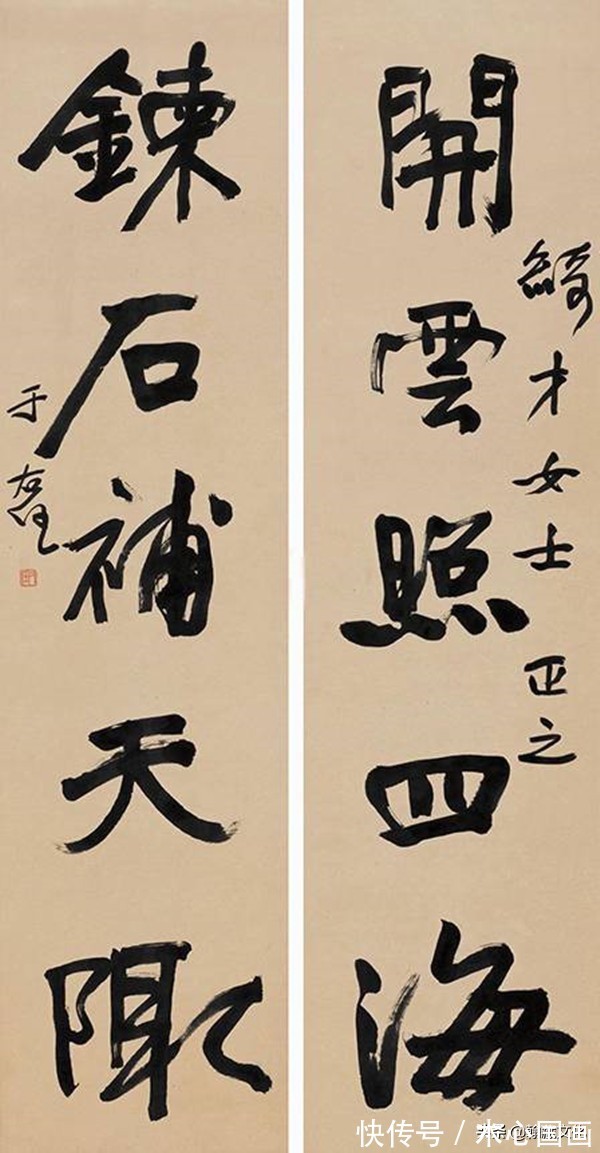 開雲照四海
綺才女士正之
鍊石補天陬
于右任
快传号 / 心国画